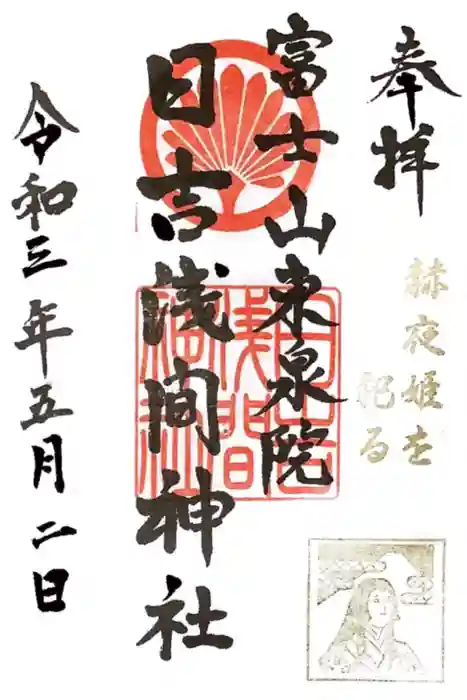 奉拝
赫夜姫を
祀る
富士山東泉院
日吉浅間神社
令和三年五月二日
日吉
浅間
神社